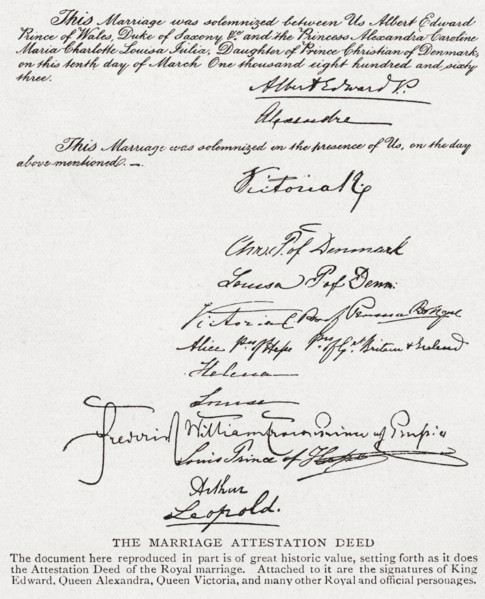 This Marriage was solemnized between Us Albert Edward
Prince of Wales, Duke of Saxony &c. and the Princess Alexandra Caroline
Maria Charlotte Louisa Julia, Daughter of Prince Christian of Denmark,
on this tenth day of March One thousand eight hundred and sixty
three.
Albert Edward P.
Alexandra
This Marriage was solemnized in the presence of Us, on the day
above mentioned. —
Victoria R
Chr. P. of Denmark
Louisa P of Denm:
Victoria
Alice Pss of Hesse Pss of Gt Britain & Ireland
Helena
Louise
Frederick William Crown Prince of Prussia
Louis Prince of Hesse
Arthur
Leopold.
THE MARRIAGE ATTESTATION DEED
The document here reproduced in part is of great historic value, setting forth as it does
the Attestation Deed of the Royal marriage. Attached to it are the signatures of King
Edward, Queen Alexandra, Queen Victoria, and many other Royal and official personages.